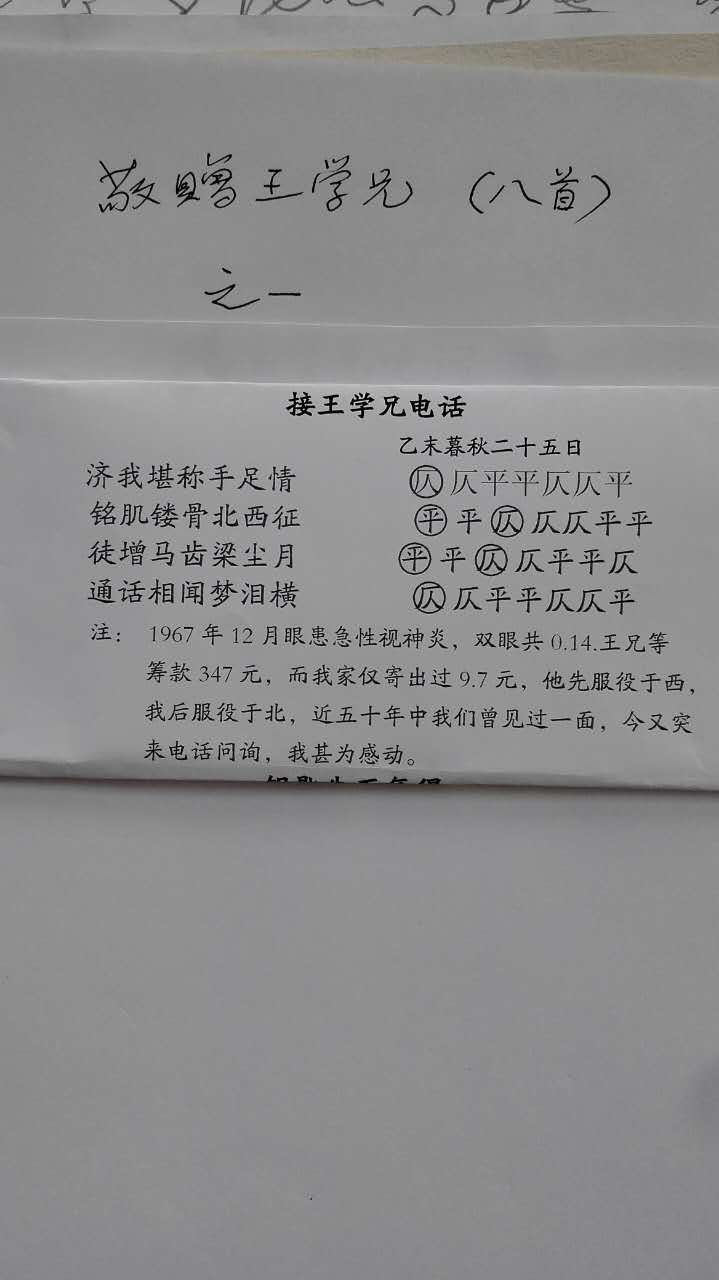 敬赠王学兄（八首）
之一
接王学兄电话
乙未暮秋二十五日
济我堪称手足情 仄仄平平仄仄平
铭肌镂骨北西征 平平仄仄仄平平
徒增马齿梁尘月 平平仄仄平平仄
通话相闻梦泪横 仄仄平平仄仄平
注： 1967年12月眼患急性视神炎，双眼共0.14.王兄等
筹款347元，而我家仅寄出过9.7元，他先服役于西，
我后服役于北，近五十年中我们曾见过一面，今又突
来电话问询，我甚为感动。